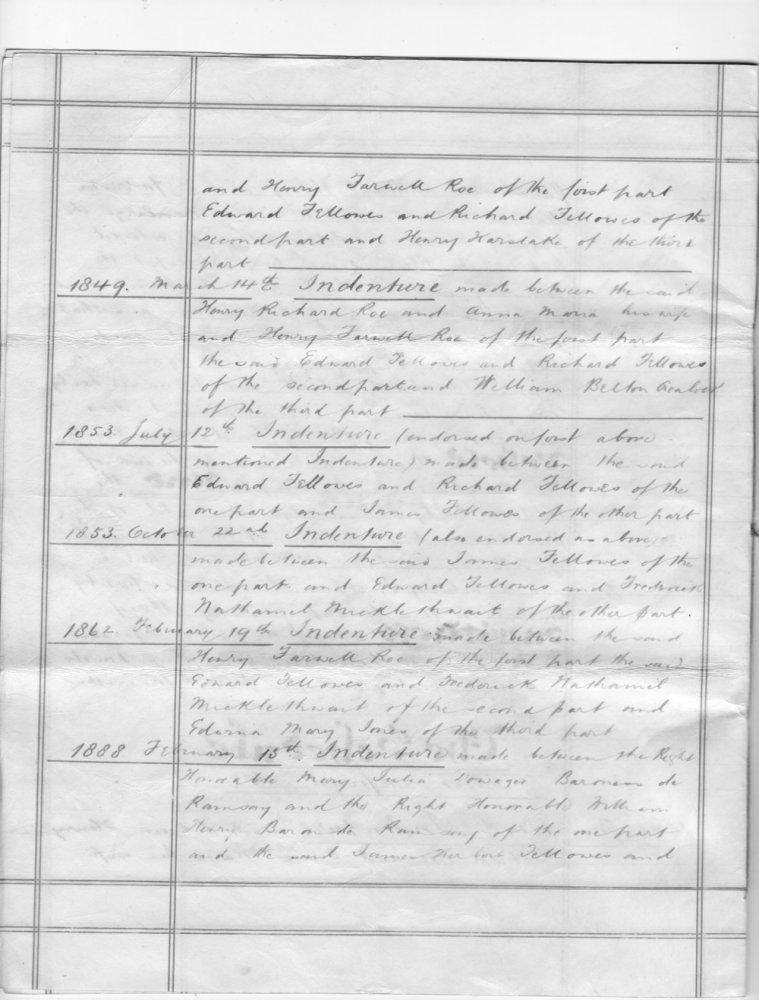 and Henry Farwell Roe of the first part
Edward Fellowes and Richard Fellowes of the
second part and Henry Karslake of the third
part
1849. March 14th Indenture made between the said
Henry Richard Roe and Anna Maria his wife
and Henry Farwell Roe of the first part
the said Edward Fellowes and Richard Fellowes
of the second part and William Belton
of the third part
1853 July 12th Indenture (endorsed on first above
mentioned Indenture) made between the said
Edward Fellowes and Richard Fellowes of the
one part and James Fellowes of the other part
1853. October 22nd Indenture (also endorsed as above)
made between the said James Fellowes of the
one part and Edward Fellowes and Frederick
Nathaniel Micklethwait of the other part.
1862. February 19th Indenture made between the said
Henry Farwell Roe of the first part the said
Edward Fellowes and Frederick Nathaniel
Micklethwait of the second part and
Edwina Mary Jones of the third part
1888 February 15th Indenture made between the Right
Honorable Mary Julia Dowager Baroness de
Ramsay and the Right Honorable William
Henry Baron de Ramsay of the one part
and the said James Herbert Fellowes and